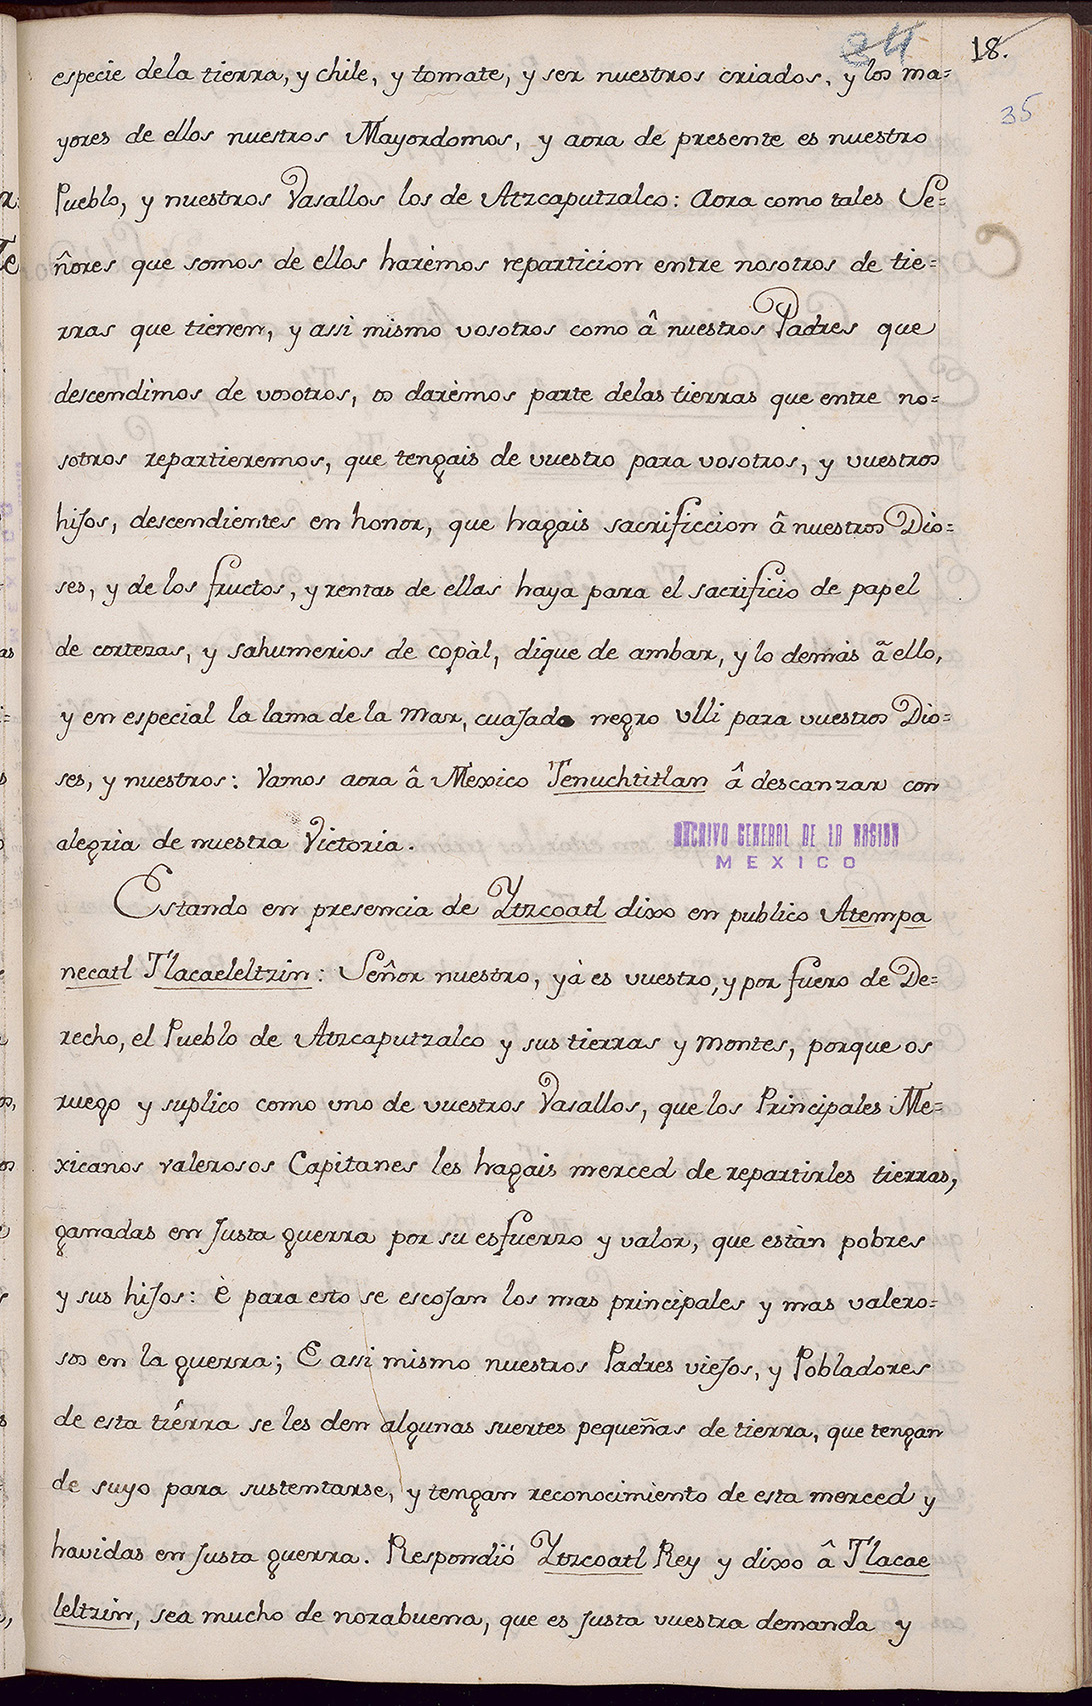 24 18.
35
especie dela tierra, y chile, y tomate, y ser nuestros criados, y los ma=
yores de ellos nuestros Mayordomos, y aora de presente es nuestro
Pueblo, y nuestros Vasallos los de Atzcaputzalco: aora como tales Se=
ñores que somos de ellos harèmos reparticion entre nosotros de tie=
rras que tienen, y assi mismo vosotros como â nuestros Padres que
descendimos de vosotros, os darèmos parte delas tierras que entre no=
sotros repartieremos, que tengais de vuestro para vosotros, y vuestros
hijos, descendientes en honor, que hagais sacrificcion â nuestros Dio=
ses, y de los fructos, y rentas de ellas haya para el sacrificio de papel
de cortezas, y sahumerios de copàl, dique de ambar, y lo demàs â ello,
y en especial la lama de la mar, cuajado negro ulli para vuestros Dio=
ses, y nuestros: Vamos aora â Mexico Tenuchtitlan â descanzar con
alegria de nuestra Victoria.
ARCHIVO GENERAL DE LA NACION
MEXICO
Estando en presencia de Ytzcoatl dixo en publico Atempa
necatl Tlacaeleltzin: Señor nuestro, yà es vuestro, y por fuero de De=
recho, el Pueblo de Atzcaputzalco y sus tierras y montes, porque os
ruego y suplico como uno de vuestros Vasallos, que los Principales Me=
xicanos valerosos Capitanes les hagais merced de repartirles tierras,
ganadas en Justa guerra por su esfuerzo y valor, que estàn pobres
y sus hijos: è para esto se escojan los mas principales y mas valero=
sos en la guerra; E assi mismo nuestros Padres viejos, y Pobladores
de esta tiérra se les den algunas suertes pequeñas de tierra, que tengan
de suyo para sustentarse, y tengan reconocimiento de esta merced y
havidas en Justa guerra. Respondió Ytzcoatl Rey y dixo â Tlacae
leltzin, sea mucho de norabuena, que es Justa vuestra demanda y